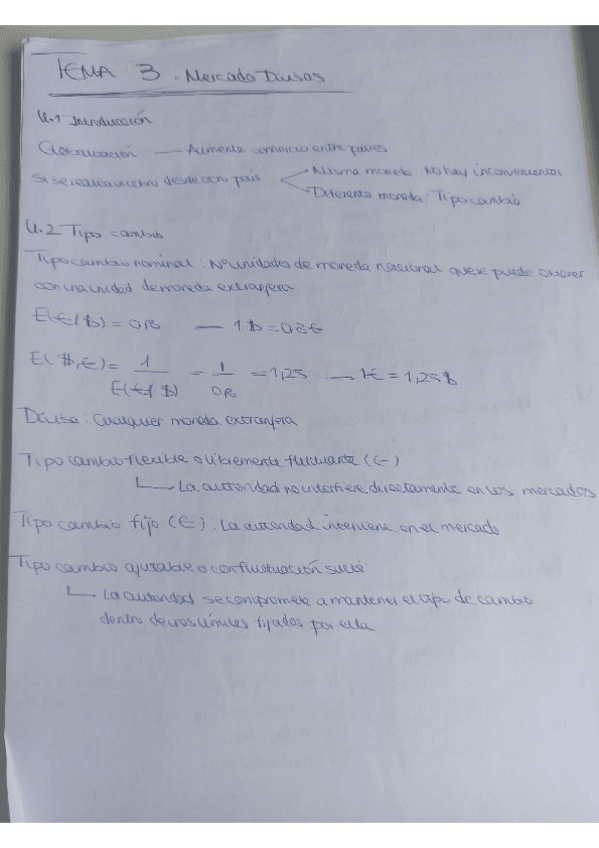 TEMA 3. Mercado Divisas
4.1 Introducción
Globalización — Aumenta comercio entre países
Si se realiza desde otro país
Misma moneda: No hay inconvenientes
Diferente moneda: Tipo cambio
4.2 Tipo cambio
Tipo cambio nominal: Nº unidades de moneda nacional que se puede obtener
con una unidad de moneda extranjera
E(€/$) = 0,8 — 1$ = 0,8€
E($,€) = 1/E(€/$) = 1/0,8 = 1,25 — 1€ = 1,25$
Divisa: Cualquier moneda extranjera
Tipo cambio flexible o libremente fluctuante (E)
La autoridad no interfiere directamente en los mercados
Tipo cambio fijo (E): La autoridad interviene en el mercado
Tipo cambio ajustable o con fluctuación sucia
La autoridad se compromete a mantener el tipo de cambio
dentro de unos límites fijados por ella